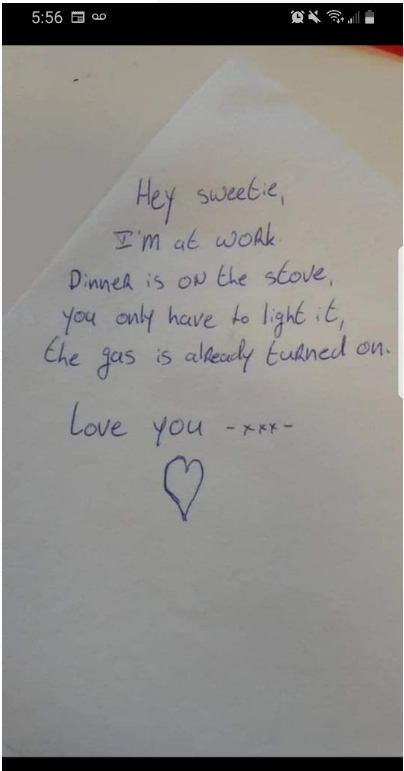 5:56
Hey sweetie,
I'm at work.
Dinner is on the stove,
you only have to light it,
the gas is already turned on.
Love you -xxx-